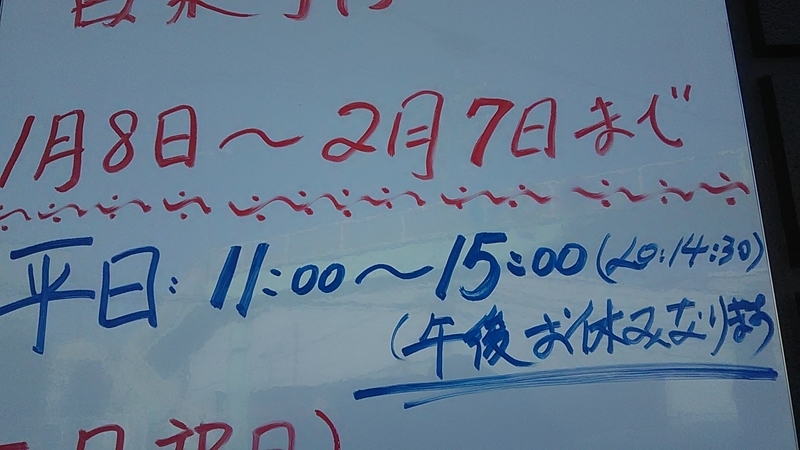 1月8日〜2月7日まで
平日:11:00〜15:00(LO:14:30)
(午後お休みなります
土日祝日)